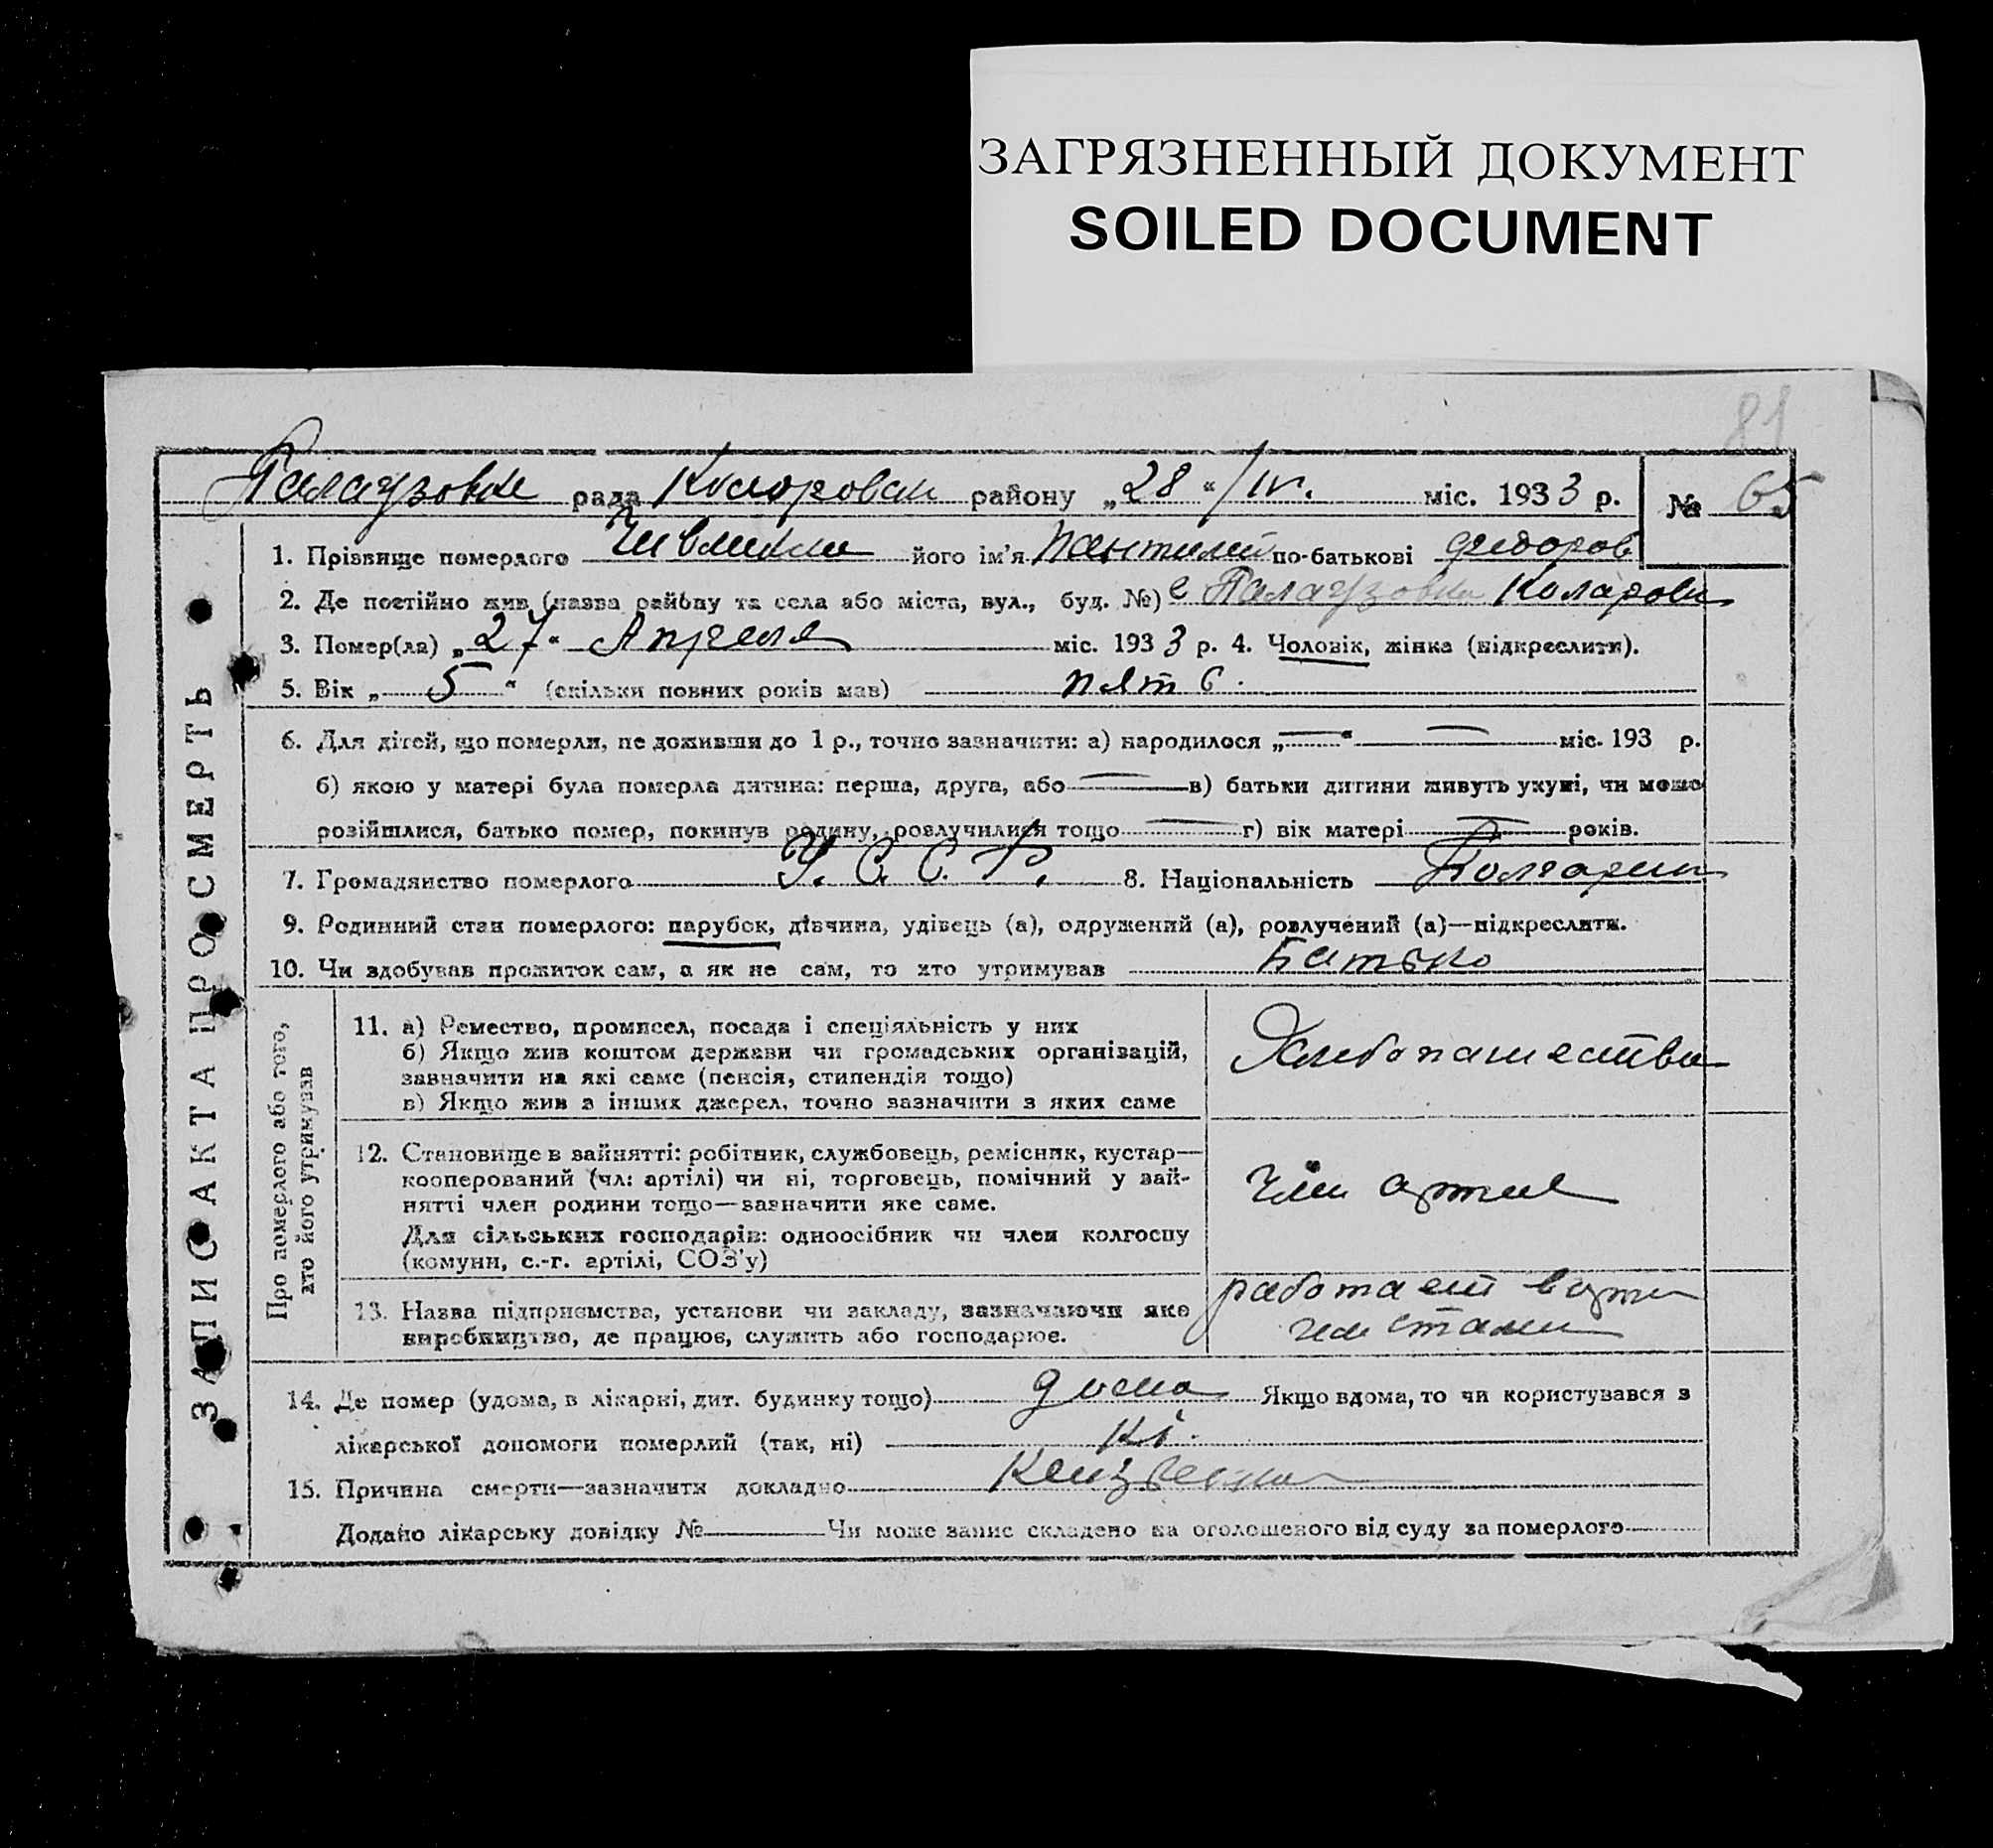 ЗАГРЯЗНЕННЫЙ ДОКУМЕНТ
SOILED DOCUMENT
81
рада району „28“/IV. міс. 1933 р. № 65
ЗАПИС АКТА ПРО СМЕРТЬ
1. Прізвище померлого його ім’я Пантилей по-батькові Федоров
2. Де постійно жив (назва району та села або міста, вул., буд. №) с Палаузовка Коларовск
3. Помер(ла) „27“ Апреля міс. 1933 р. 4. Чоловік, жінка (підкреслити).
5. Вік „5“ (скільки повних років мав) пять
6. Для дітей, що померли, не доживши до 1 р., точно зазначити: а) народилося „—“ — міс. 193 р.
б) якою у матері була померла дитина: перша, друга, або — в) батьки дитини живуть укупі, чи може
розійшлися, батько помер, покинув родину, розлучилися тощо — г) вік матері — років.
7. Громадянство померлого У.С.С.Р. 8. Національність Болгарин
9. Родинний стан померлого: парубок, дівчина, удівець (а), одружений (а), розлучений (а)—підкреслити.
10. Чи здобував прожиток сам, а як не сам, то хто утримував Батько
Про померлого або того,
хто його утримував
11. а) Ремество, промисел, посада і спеціяльність у них
б) Якщо жив коштом держави чи громадських організацій,
зазначити на які саме (пенсія, стипендія тощо)
в) Якщо жив з інших джерел, точно зазначити з яких саме
Хлебопашество
12. Становище в зайнятті: робітник, службовець, ремісник, кустар—
кооперований (чл: артілі) чи ні, торговець, помічний у зай-
нятті член родини тощо—зазначити яке саме.
Для сільських господарів: одноосібник чи член колгоспу
(комуни, с.-г. артілі, СОЗ’у)
член артил
13. Назва підприємства, установи чи закладу, зазначаючи яке
виробництво, де працює, служить або господарює.
работает в арти
14. Де помер (удома, в лікарні, дит. будинку тощо) дома Якщо вдома, то чи користувався з
лікарської допомоги померлий (так, ні) Ні.
15. Причина смерти—зазначити докладно
Додано лікарську довідку № Чи може запис складено на оголошеного від суду за померлого